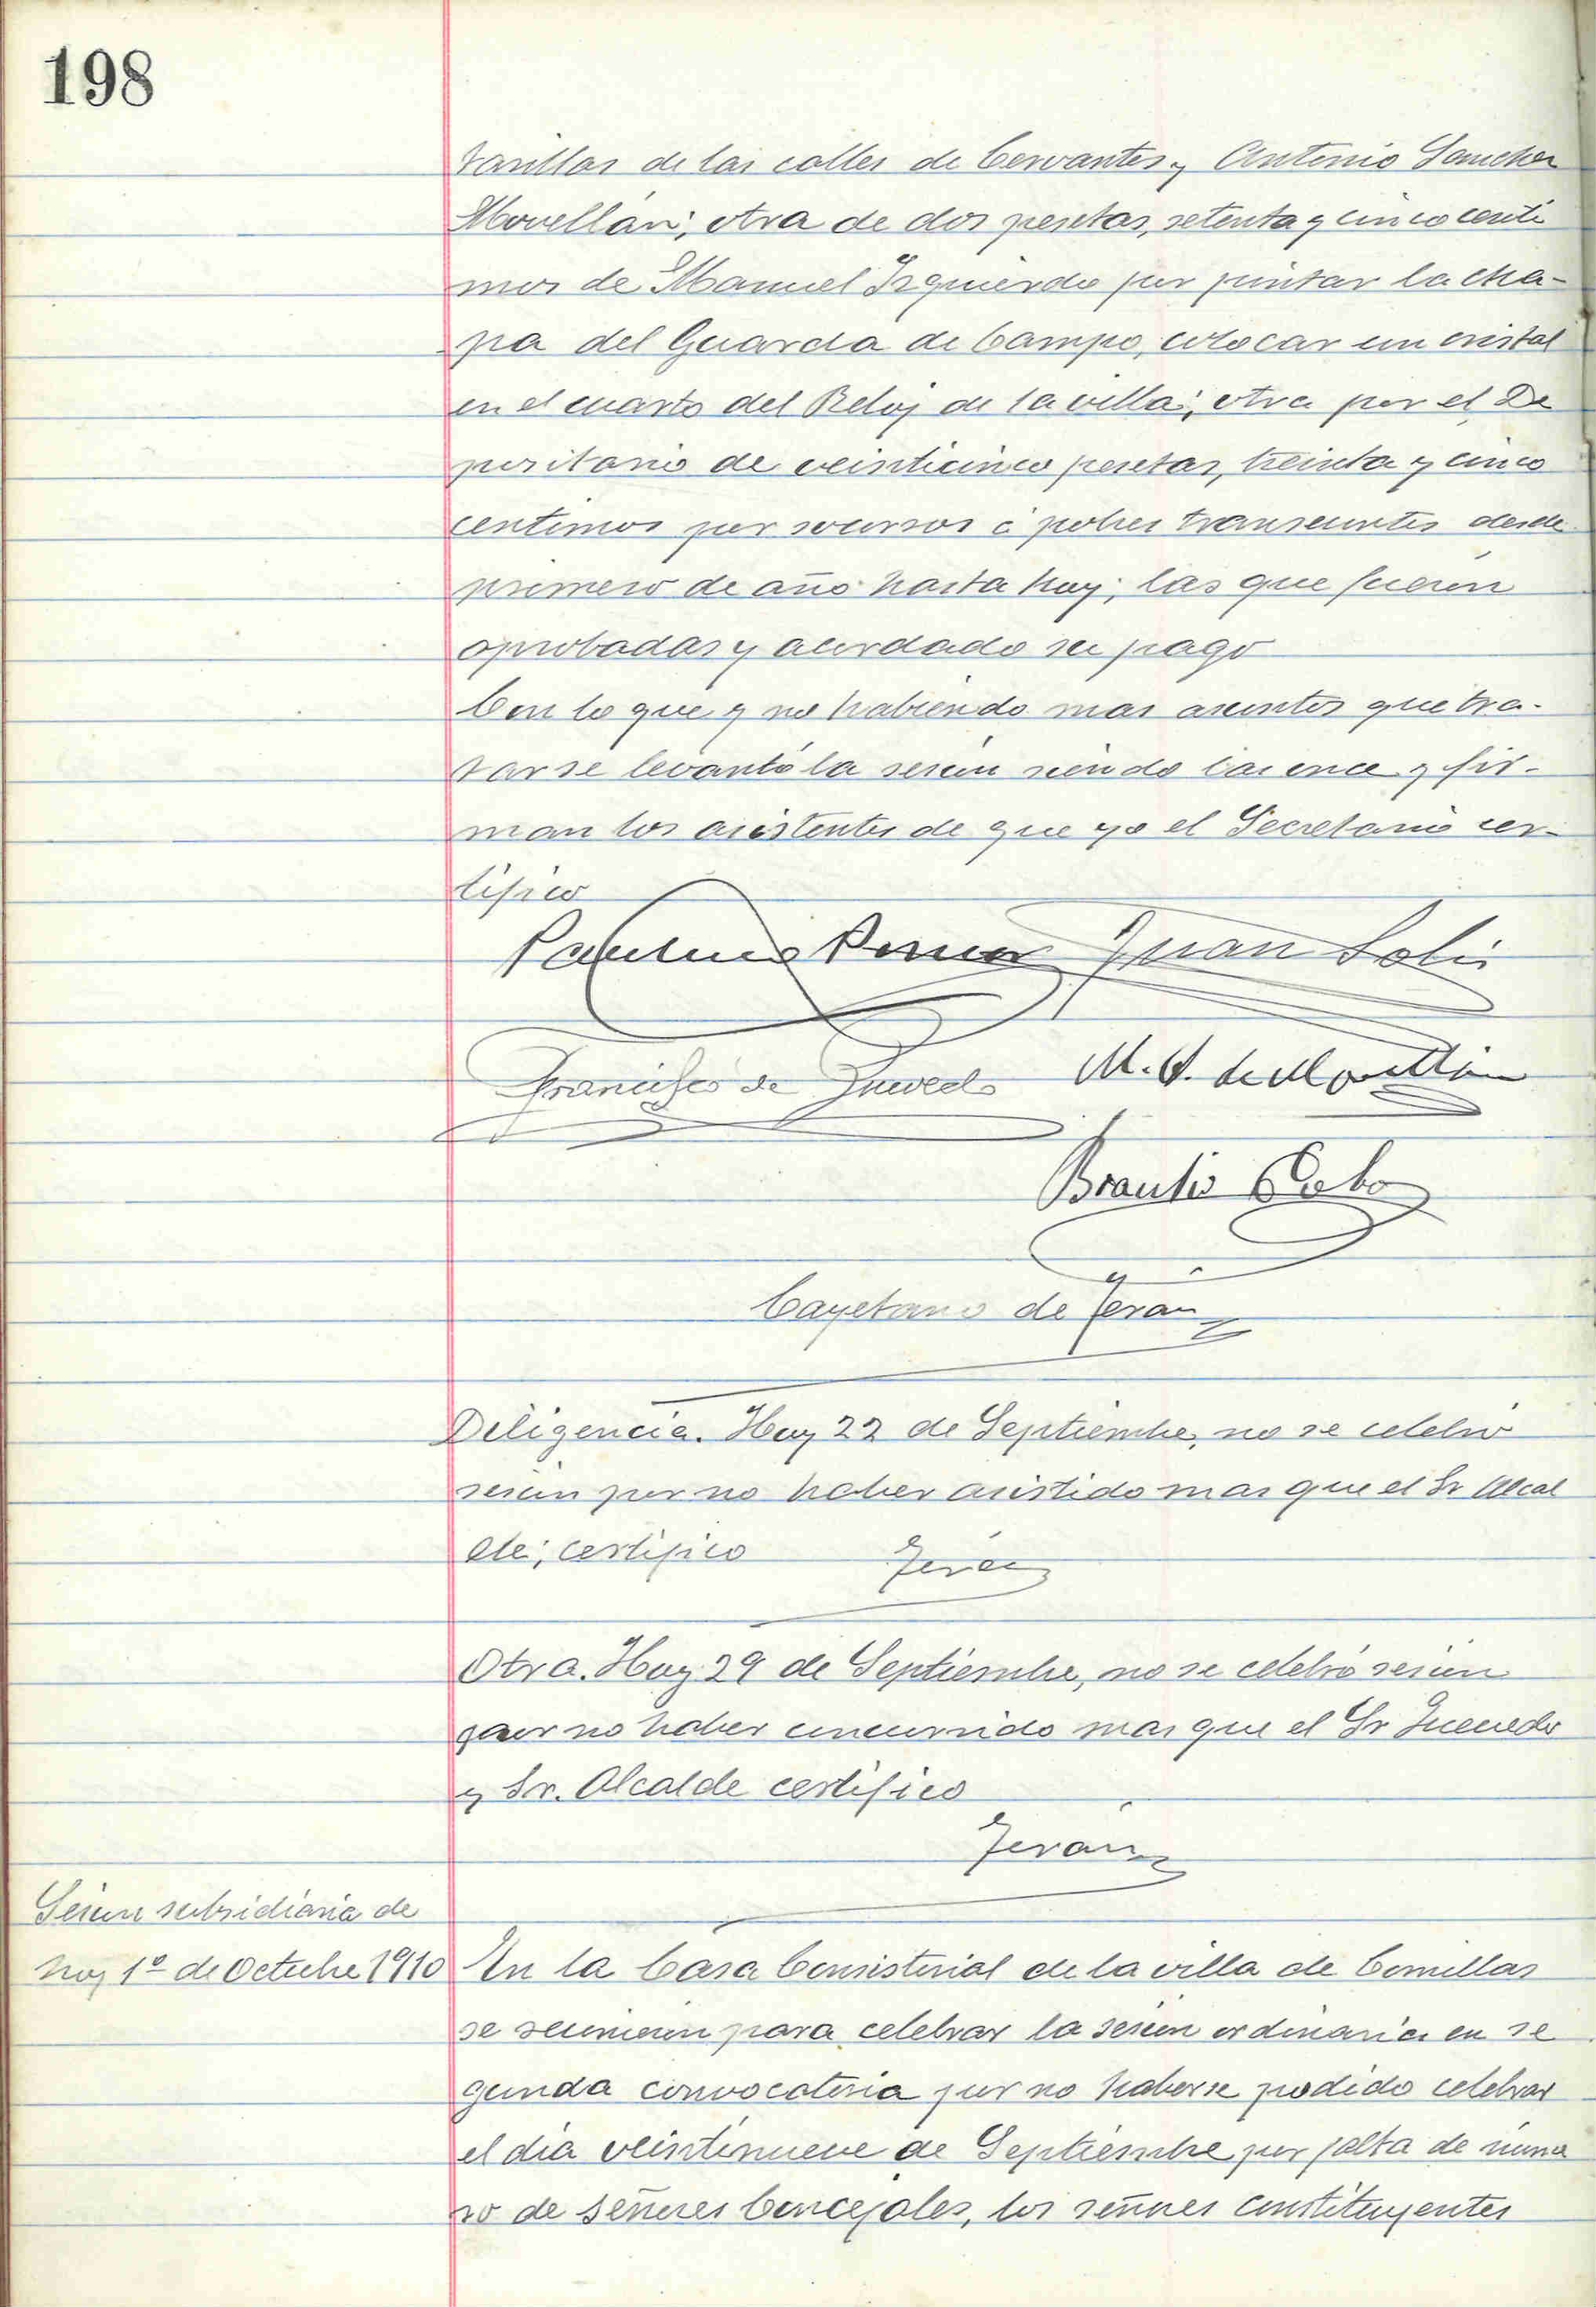 198
tarillas de las calles de Cervantes y Antonio Sanchez
Movellán; otra de dos pesetas, setenta y cinco centi
mos de Manuel Izquierdo por pintar la cha-
pa del Guarda de Campo, colocar un cristal
en el cuarto del Reloj de la villa; otra por el De
positario de veinticinco pesetas, treinta y cinco
centimos por socorros á pobres transeuntes desde
primero de año hasta hoy; las que fueron
aprobadas y acordado su pago
Con lo que y no habiendo mas asuntos que tra-
tar se levantó la sesion siendo las once y fir-
man los asistentes de que yo el Secretario cer-
tifico
Juan Solis
Francisco de Quevedo M. S. de Movellán
Braulio Cobo
Cayetano de Terán
Diligencia. Hoy 22 de Septiembre, no se celebró
sesion por no haber asistido mas que el Sr Alcal
de; certifico Terán
Otra. Hoy 29 de Septiembre, no se celebró sesion
por no haber concurrido mas que el Sr Quevedo
y Sr. Alcalde certifico
Terán
Sesion subsidiaria de
hoy 1º de Octubre 1910
En la Casa Consistorial de la villa de Comillas
se reunieron para celebrar la sesion ordinaria en se
gunda convocatoria por no haberse podido celebrar
el dia veintinueve de Septiembre por falta de nume
ro de señores Concejales, los señores constituyentes